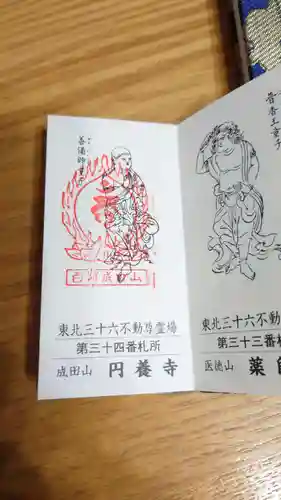 善備師童子
東北三十六不動尊霊場
第三十四番札所
成田山 円養寺
普香王童子
東北三十六不動
第三十三番札
医徳山 薬師